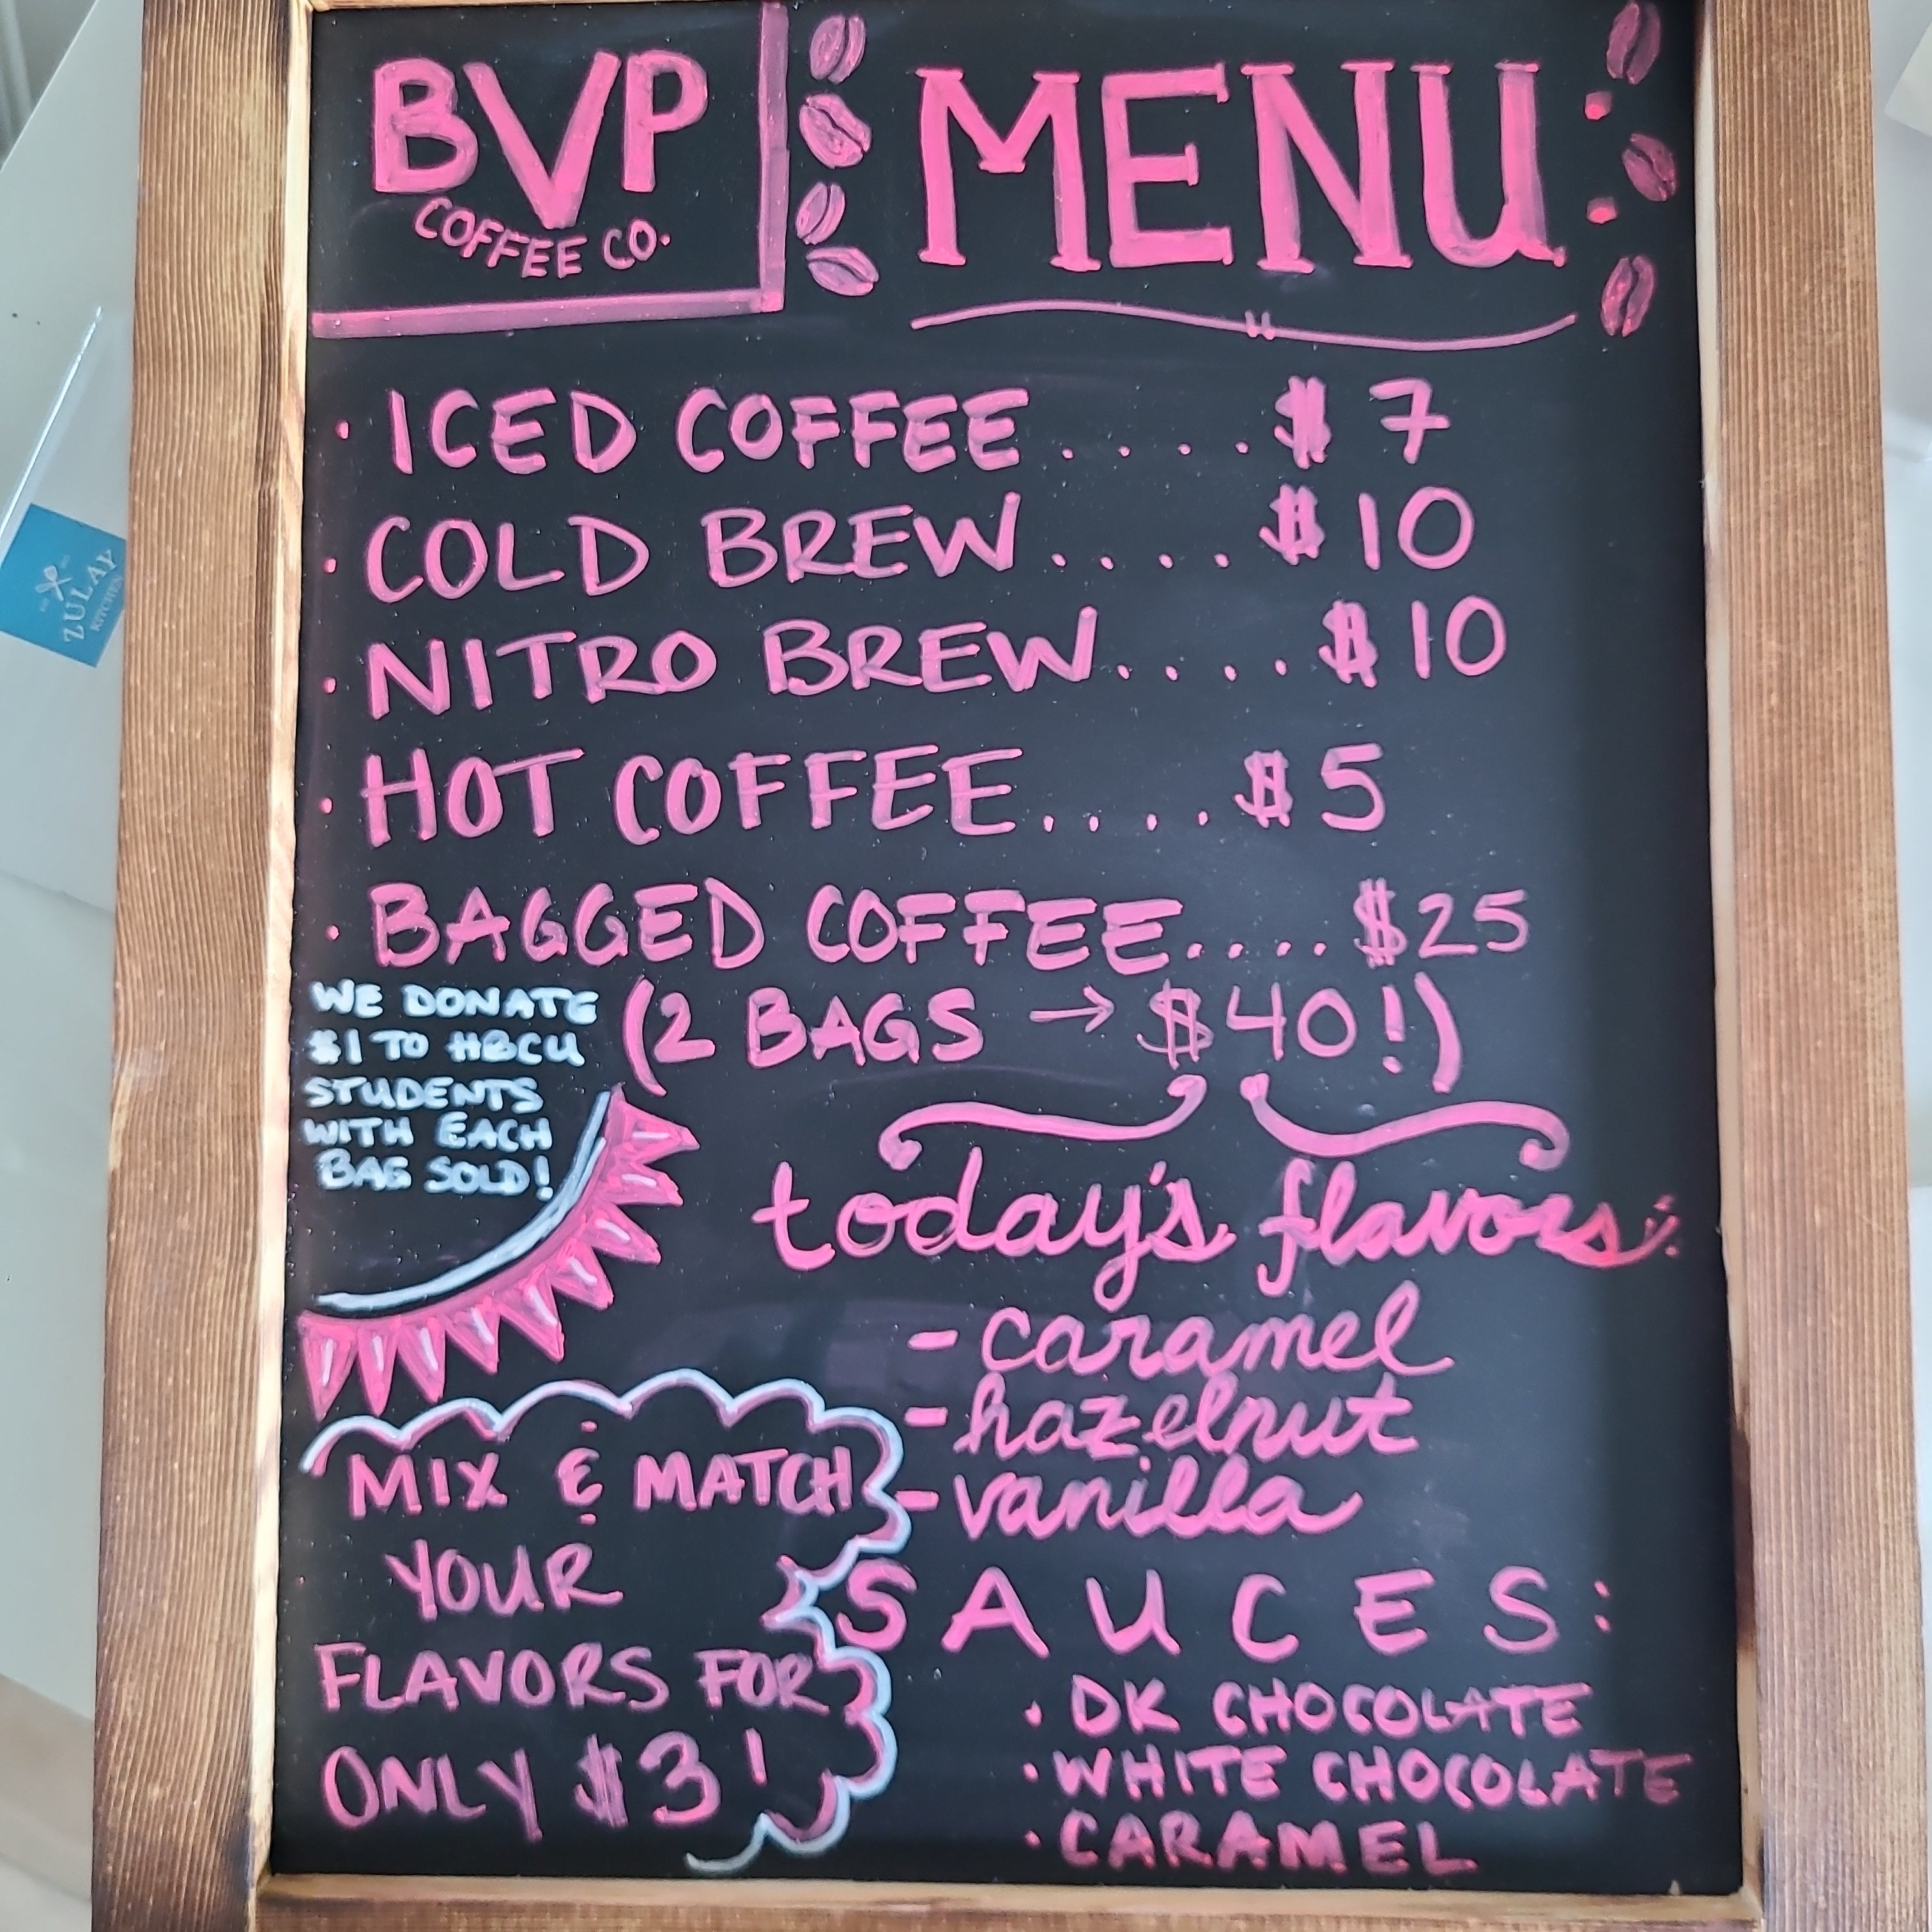 BVP
COFFEE CO.
MENU
• ICED COFFEE .... $ 7
• COLD BREW .... $ 10
• NITRO BREW .... $ 10
• HOT COFFEE .... $ 5
• BAGGED COFFEE .... $25
(2 BAGS → $40!)
WE DONATE
$1 TO HBCU
STUDENTS
WITH EACH
BAG SOLD!
today's flavors:
- caramel
- hazelnut
- vanilla
MIX & MATCH
YOUR
FLAVORS FOR
ONLY $3!
SAUCES:
• DK CHOCOLATE
• WHITE CHOCOLATE
• CARAMEL
ZULAY
KITCHEN